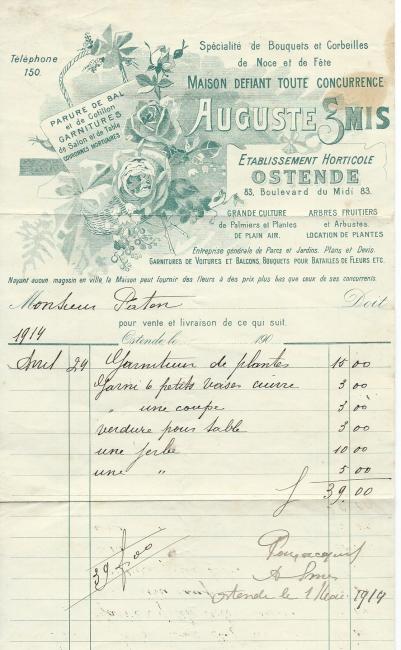 Téléphone
150.
Spécialité de Bouquets et Corbeilles
de Noce et de Fête
MAISON DEFIANT TOUTE CONCURRENCE
PARURE DE BAL
et de Cotillon
GARNITURES
de Salon et de Table
COURONNES MORTUAIRES
AUGUSTE SMIS
ETABLISSEMENT HORTICOLE
OSTENDE
83, Boulevard du Midi 83.
GRANDE CULTURE
de Palmiers et Plantes
DE PLAIN AIR.
ARBRES FRUITIERS
et Arbustes.
LOCATION DE PLANTES
Entreprise générale de Parcs et Jardins. Plans et Devis.
GARNITURES DE VOITURES ET BALCONS, BOUQUETS POUR BATAILLES DE FLEURS ETC.
Nayant aucun magasin en ville la Maison peut fournir des fleurs à des prix plus bas que ceux de ses concurrents.
Monsieur Paton Doit
pour vente et livraison de ce qui suit.
1914 Ostende le 190
Avril 29 Garniture de plantes 15 00
Garni 6 petits vases cuivre 3 00
" une coupe 3 00
verdure pour table 3 00
une jerbe 10 00
une " 5 00
f 39.00
39 f 00
Pour acquit
A Smis
Ostende le 1 Mai 1914